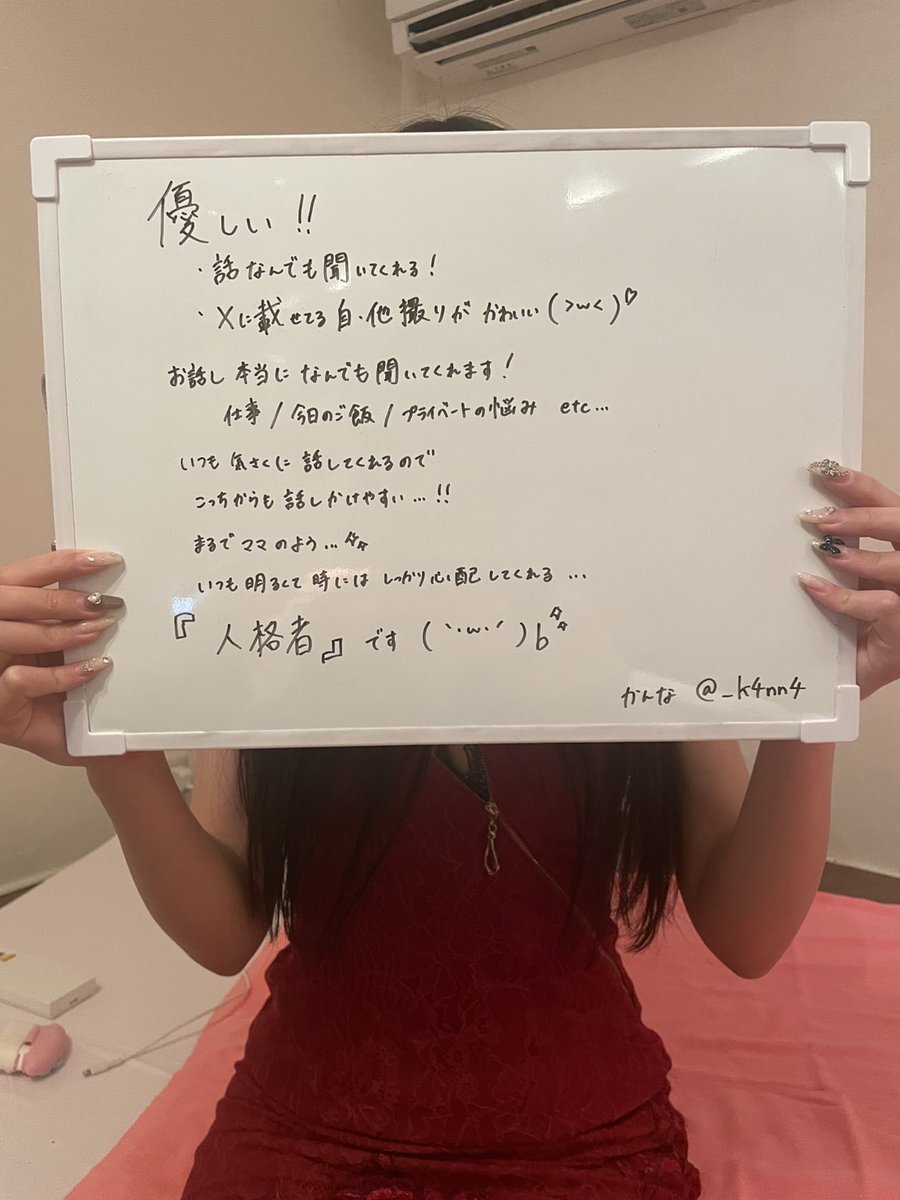 優しい!!
・話なんでも聞いてくれる！
・Xに載せてる自・他撮りがかわいい(>w<)♡
お話し本当になんでも聞いてくれます！
仕事/今日のご飯/プライベートの悩み etc...
いつも気さくに話してくれるので
こっちからも話しかけやすい...!!
まるでママのよう...✨
いつも明るくて時にはしっかり心配してくれる...
『人格者』です(｀･ω･´)b✨
かんな @_k4nn4